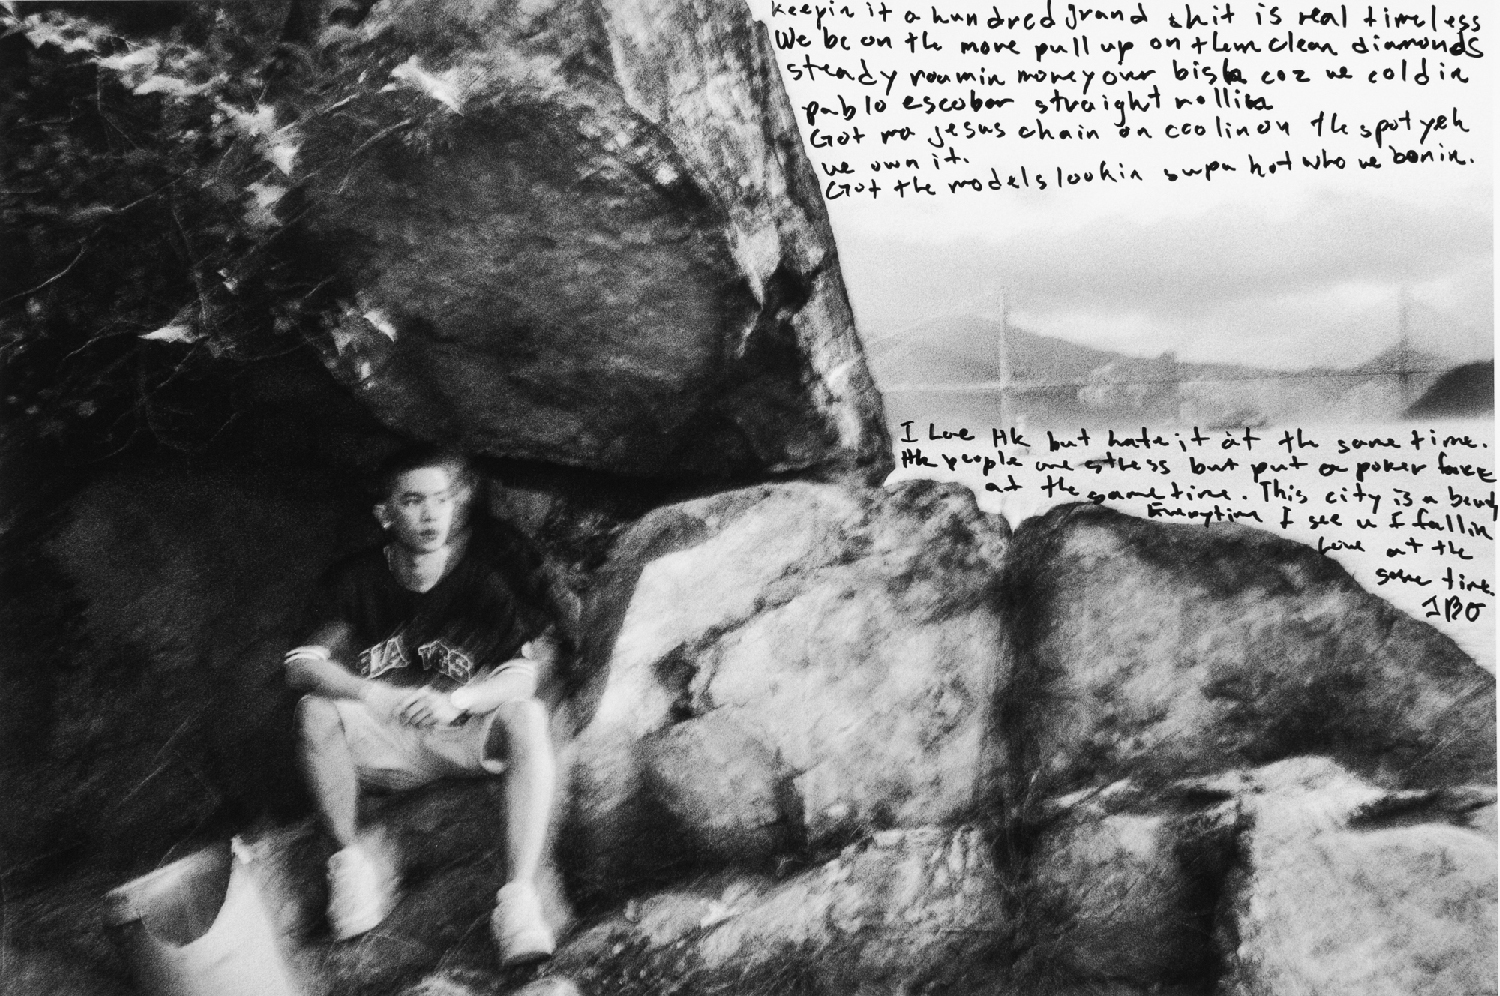 Keepin it a hundred grand shit is real timeless
We be on the move pull up on them clean diamonds
steady roamin money over bish coz we cold in
pablo escobar straight rollin
Got ma jesus chain on coolin on the spot yeh
we own it.
Got the models lookin supa hot who we bonin.
I Love HK but hate it at the same time.
HK people are stress but put a poker face
at the same time. This city is a beauty
Everytime I see u I fallin
love at the
same time.